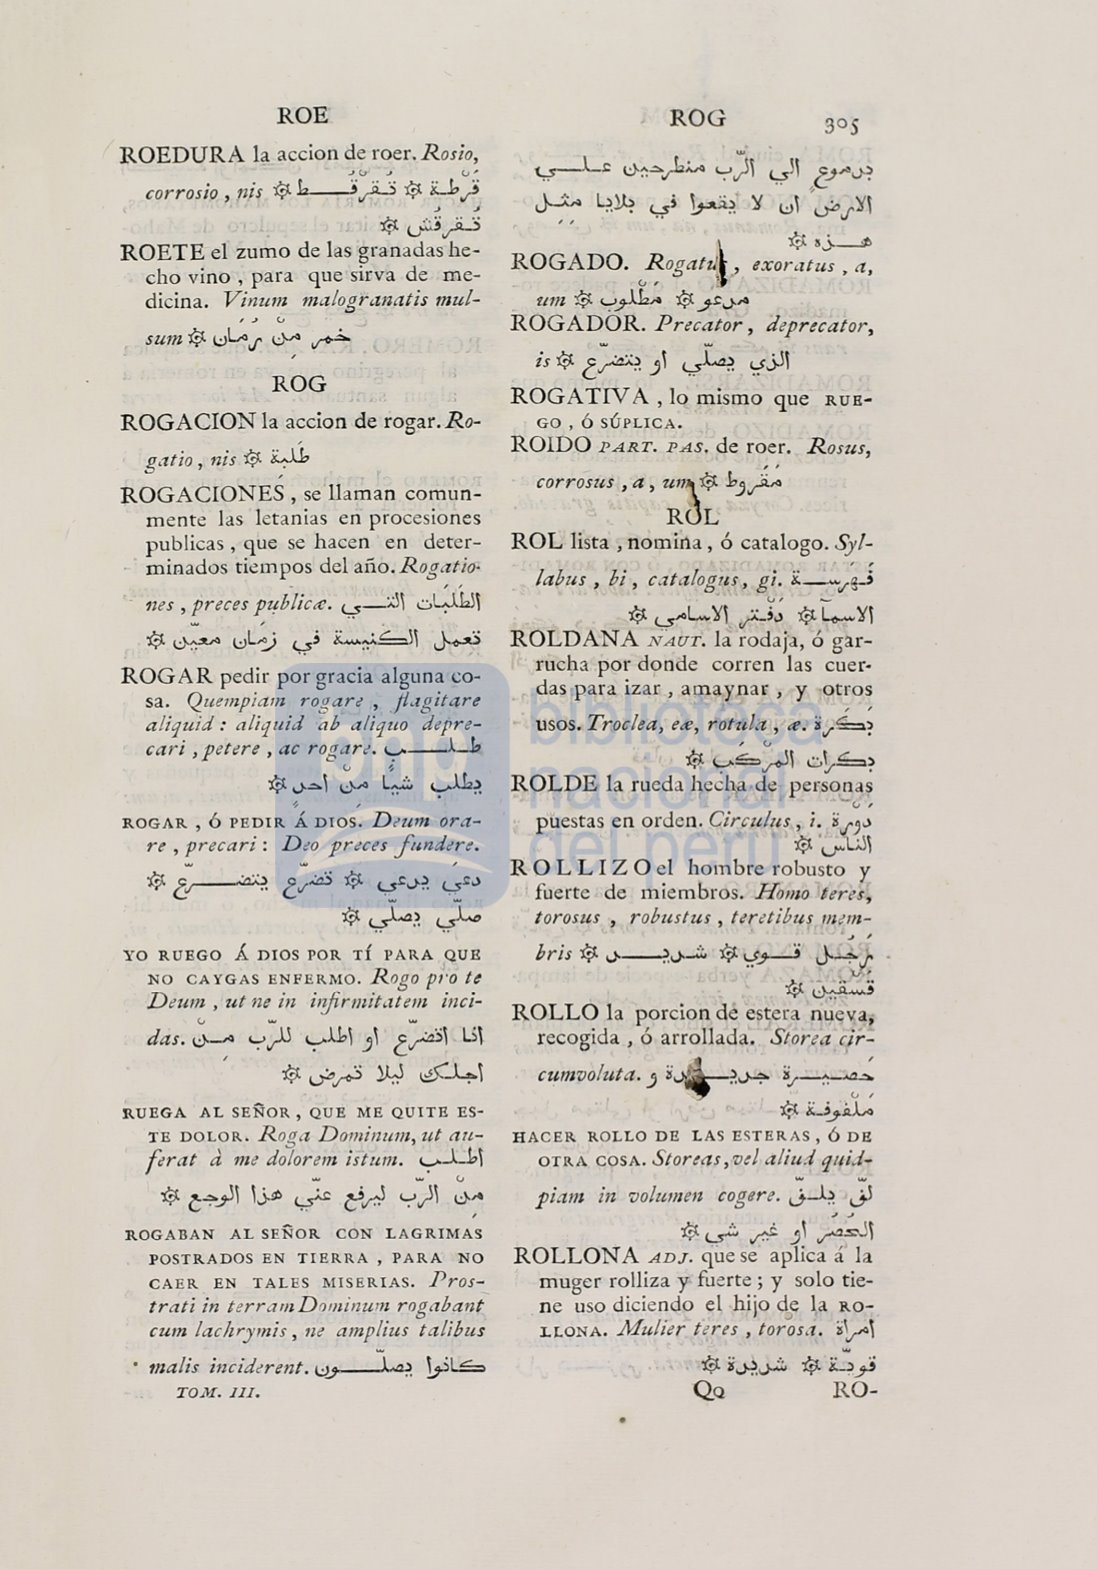 ROE
ROEDURA la accion de roer. Rosio,
corrosio, nis ۞ قرطة ۞ تقرقط
تقرقش ۞
ROETE el zumo de las granadas he-
cho vino, para que sirva de me-
dicina. Vinum malogranatis mul-
sum ۞ خمر من رمان
ROG
ROGACION la accion de rogar. Ro-
gatio, nis ۞ طلبة
ROGACIONES, se llaman comun-
mente las letanias en procesiones
publicas, que se hacen en deter-
minados tiempos del año. Rogatio-
nes, preces publicæ. الطلبات التي
تعمل الكنيسة في زمان معيّن ۞
ROGAR pedir por gracia alguna co-
sa. Quempiam rogare, flagitare
aliquid: aliquid ab aliquo depre-
cari, petere, ac rogare. طلب
يطلب شيًا من احد ۞
ROGAR, Ó PEDIR Á DIOS. Deum ora-
re, precari: Deo preces fundere.
دعي يدعي ۞ تضرّع يتضرّع ۞
صلّي يصلّي ۞
YO RUEGO Á DIOS POR TÍ PARA QUE
NO CAYGAS ENFERMO. Rogo pro te
Deum, ut ne in infirmitatem inci-
das. انا اتضرّع او اطلب للرّب من
اجلك ليلا تمرض ۞
RUEGA AL SEÑOR, QUE ME QUITE ES-
TE DOLOR. Roga Dominum, ut au-
ferat à me dolorem istum. اطلب
من الرّب ليرفع عنّي هذا الوجع ۞
ROGABAN AL SEÑOR CON LAGRIMAS
POSTRADOS EN TIERRA, PARA NO
CAER EN TALES MISERIAS. Pros-
trati in terram Dominum rogabant
cum lachrymis, ne amplius talibus
malis inciderent. كانوا يصلّون
TOM. III.
ROG 305
بدموع الي الرّب منطرحين علي
الارض ان لا يقعوا في بلايا مثل
هذه ۞
ROGADO. Rogatus, exoratus, a,
um ۞ مدعو ۞ مطلوب
ROGADOR. Precator, deprecator,
is ۞ الذي يصلّي او يتضرّع
ROGATIVA, lo mismo que RUE-
GO, Ó SÚPLICA.
ROIDO PART. PAS. de roer. Rosus,
corrosus, a, um ۞ مقروط
ROL
ROL lista, nomina, ó catalogo. Syl-
labus, bi, catalogus, gi. فهرسة
الاسمآ ۞ دفتر الاسامي ۞
ROLDANA NAUT. la rodaja, ó gar-
rucha por donde corren las cuer-
das para izar, amaynar, y otros
usos. Troclea, eæ, rotula, æ. بكرة
بكرات المركب ۞
ROLDE la rueda hecha de personas
puestas en orden. Circulus, i. دورة
الناس ۞
ROLLIZO el hombre robusto y
fuerte de miembros. Homo teres,
torosus, robustus, teretibus mem-
bris ۞ رجل قوي ۞ شديد
۞
ROLLO la porcion de estera nueva,
recogida, ó arrollada. Storea cir-
cumvoluta. حصيرة جديدة و
ملفوفة ۞
HACER ROLLO DE LAS ESTERAS, Ó DE
OTRA COSA. Storeas, vel aliud quid-
piam in volumen cogere. لفّ يلفّ
الحصر او غير شي ۞
ROLLONA ADJ. que se aplica á la
muger rolliza y fuerte; y solo tie-
ne uso diciendo el hijo de la RO-
LLONA. Mulier teres, torosa. امراة
قويّة ۞ شديدة ۞
Qq RO-
bnp biblioteca
nacional
del perú